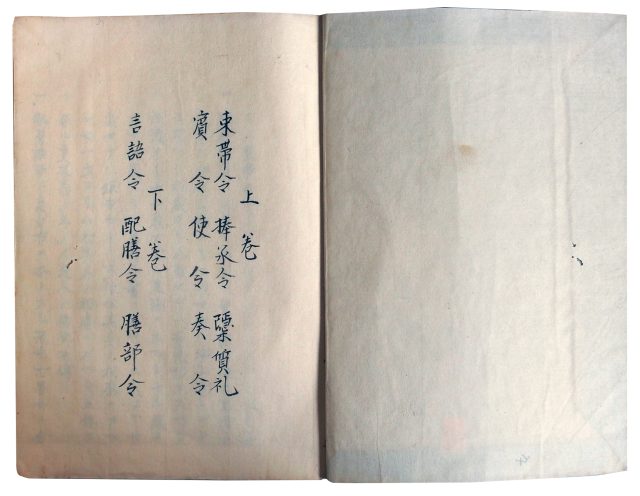 上卷
束帯令 捧承令 礼
賓令使令奏令
下巻
言語令 配膳令 膳部令